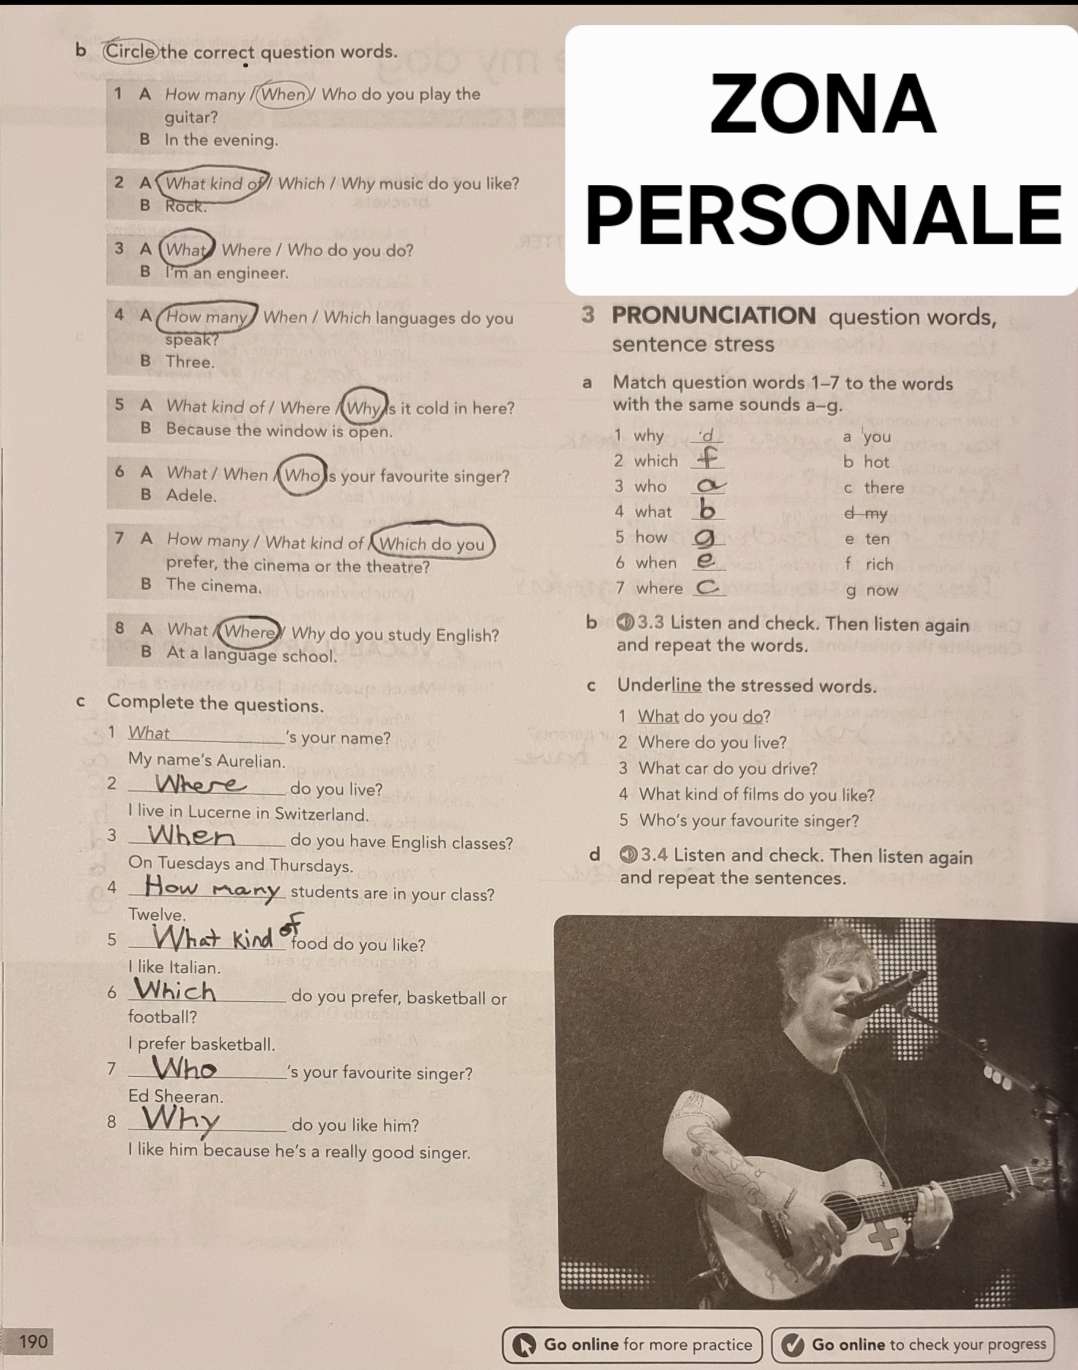 b Circle the correct question words.
1 A How many / When / Who do you play the
guitar?
B In the evening.
2 A What kind of / Which / Why music do you like?
B Rock.
3 A What / Where / Who do you do?
B I'm an engineer.
4 A How many / When / Which languages do you
speak?
B Three.
5 A What kind of / Where / Why is it cold in here?
B Because the window is open.
6 A What / When / Who is your favourite singer?
B Adele.
7 A How many / What kind of / Which do you
prefer, the cinema or the theatre?
B The cinema.
8 A What / Where / Why do you study English?
B At a language school.
c Complete the questions.
1 What 's your name?
My name's Aurelian.
2 Where do you live?
I live in Lucerne in Switzerland.
3 When do you have English classes?
On Tuesdays and Thursdays.
4 How many students are in your class?
Twelve.
5 What kind of food do you like?
I like Italian.
6 Which do you prefer, basketball or
football?
I prefer basketball.
7 Who 's your favourite singer?
Ed Sheeran.
8 Why do you like him?
I like him because he's a really good singer.
ZONA
PERSONALE
3 PRONUNCIATION question words,
sentence stress
a Match question words 1–7 to the words
with the same sounds a–g.
1 why d a you
2 which f b hot
3 who a c there
4 what b d my
5 how g e ten
6 when e f rich
7 where c g now
b 3.3 Listen and check. Then listen again
and repeat the words.
c Underline the stressed words.
1 What do you do?
2 Where do you live?
3 What car do you drive?
4 What kind of films do you like?
5 Who's your favourite singer?
d 3.4 Listen and check. Then listen again
and repeat the sentences.
190
Go online for more practice
Go online to check your progress